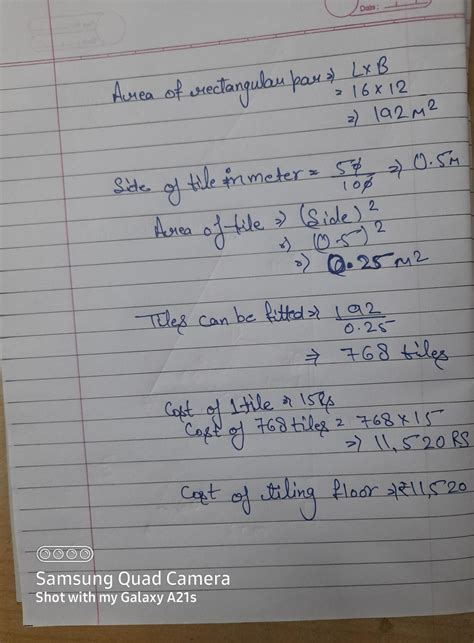 Date :
Area of rectangular par ⇒ L×B
= 16 × 12
⇒ 192 M²
Side of tile in meter = 50/100 ⇒ 0.5M
Area of tile ⇒ (Side)²
⇒ (0.5)²
⇒ 0.25 M²
Tiles can be fitted ⇒ 192/0.25
⇒ 768 tiles
Cost of 1 tile = 15Rs
Cost of 768 tiles = 768 × 15
⇒ 11,520 RS
Cost of tiling floor ⇒ ₹11,520
Samsung Quad Camera
Shot with my Galaxy A21s